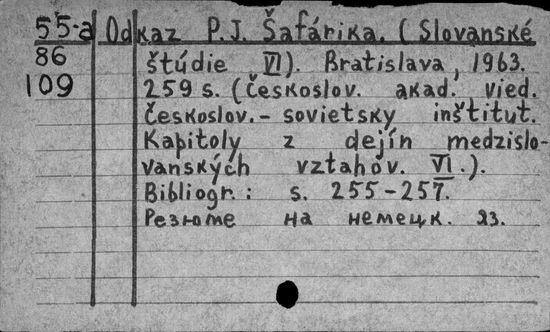 55-а Odkaz P.J. Šafárika. (Slovanské
86 štúdie VI). Bratislava, 1963.
109 259 s. (Českoslov. akad. vied.
Českoslov.- sovietsky inštitut.
Kapitoly z dejín medzislo-
vanských vztahov. VI.).
Bibliogr.: s. 255-257.
Резюме на немецк. яз.